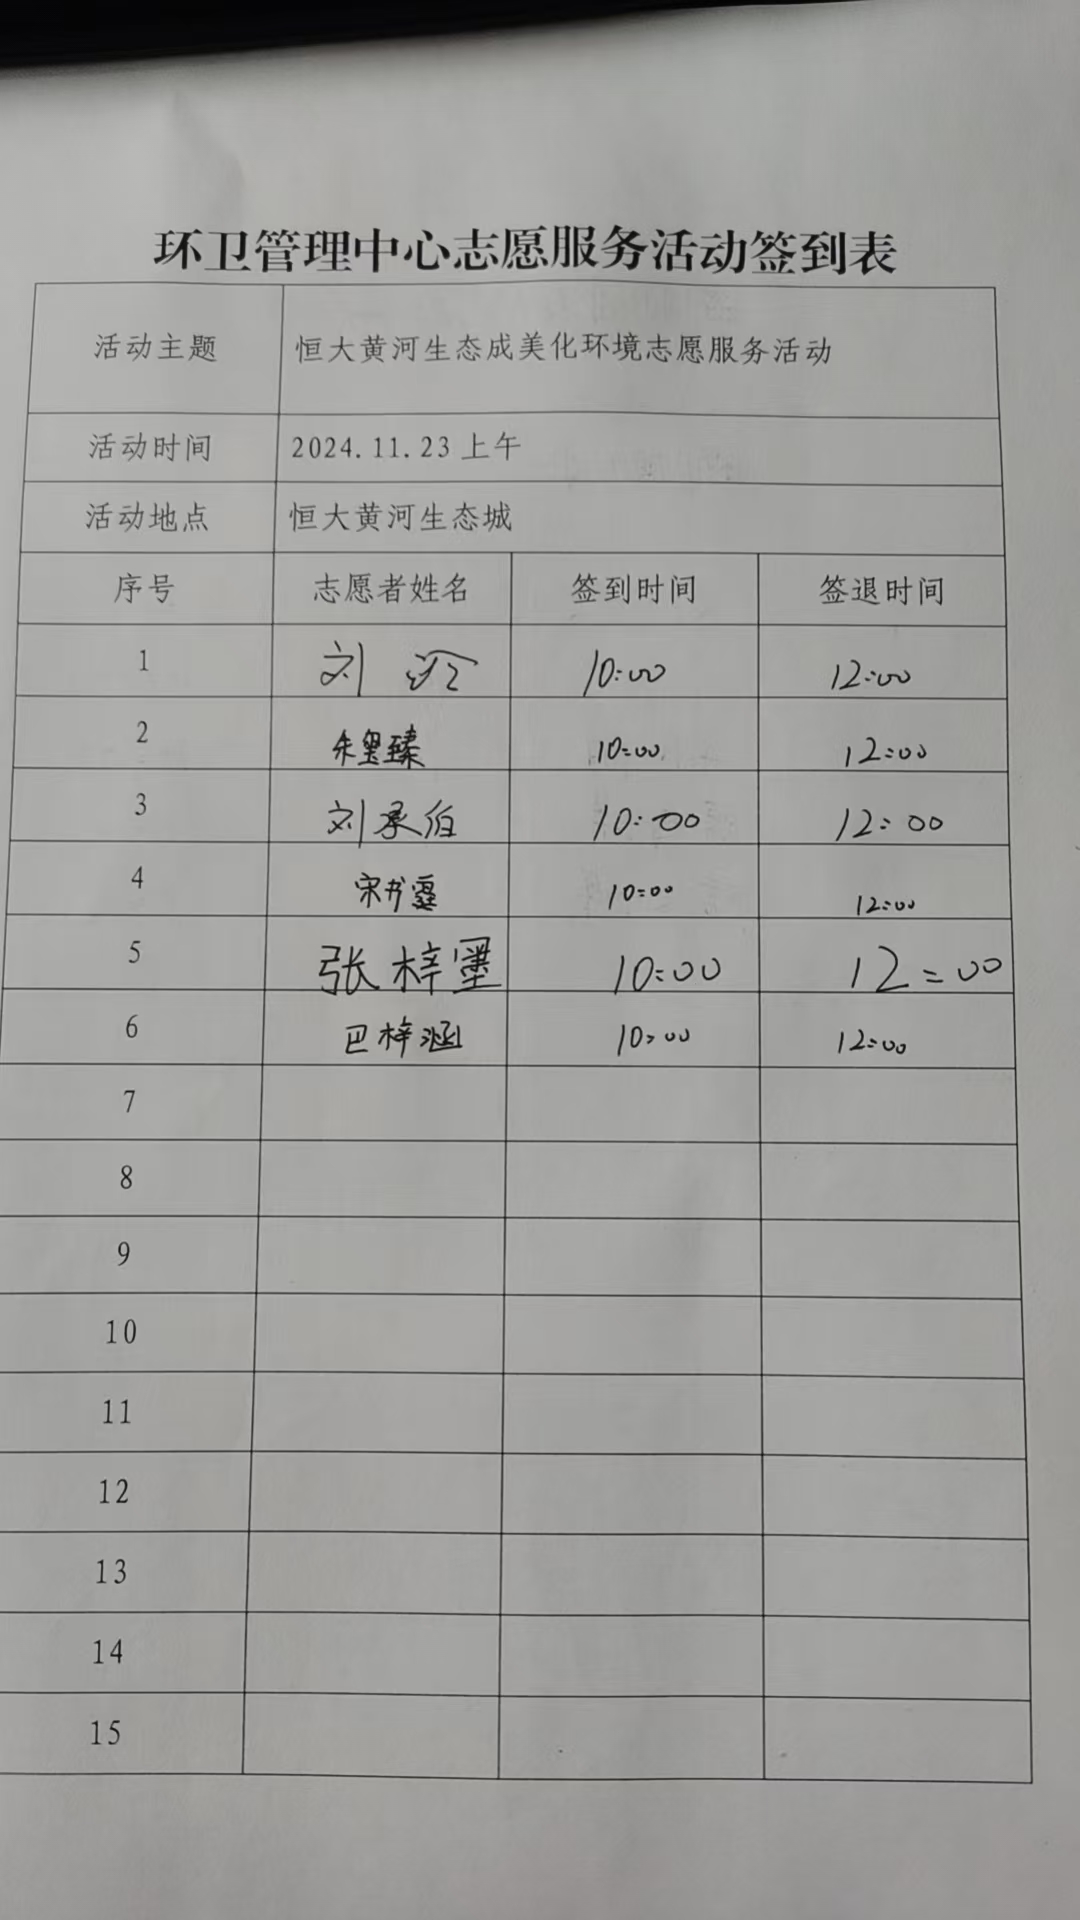 环卫管理中心志愿服务活动签到表
活动主题 恒大黄河生态成美化环境志愿服务活动
活动时间 2024.11.23上午
活动地点 恒大黄河生态城
序号 志愿者姓名 签到时间 签退时间
1 刘 10:00 12:00
2 朱玺臻 10:00 12:00
3 刘承佰 10:00 12:00
4 宋书霆 10:00 12:00
5 张梓墨 10:00 12:00
6 巴梓涵 10:00 12:00
7
8
9
10
11
12
13
14
15